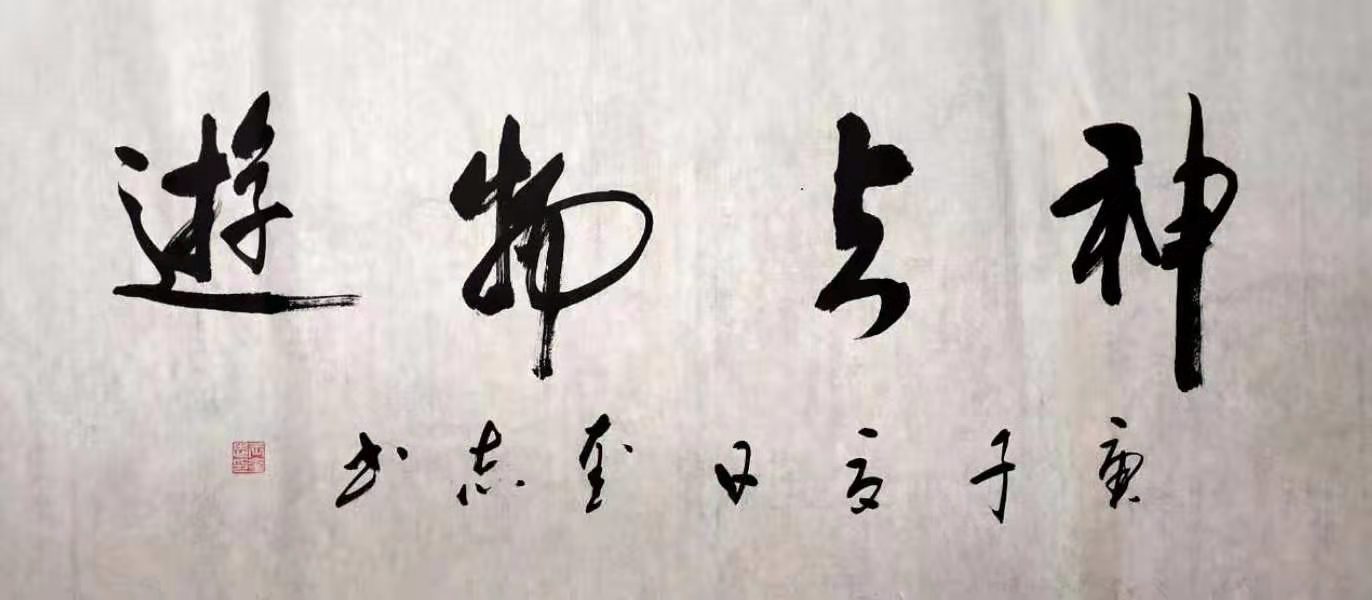 神与物遊
庚子夏日奎志书